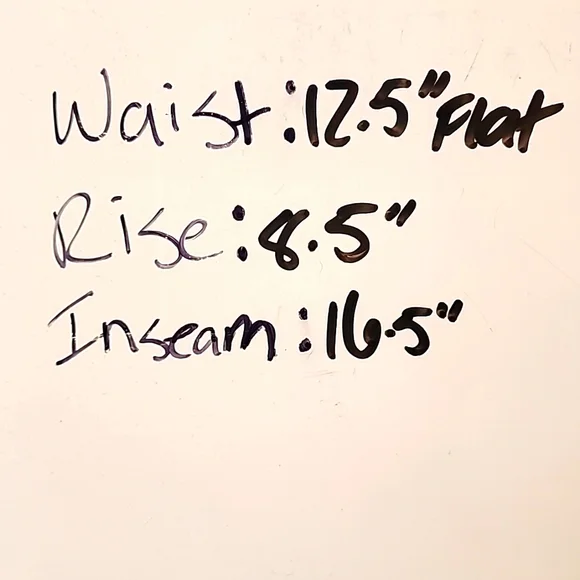 Waist:12.5" Flat
Rise:8.5"
Inseam:16.5"